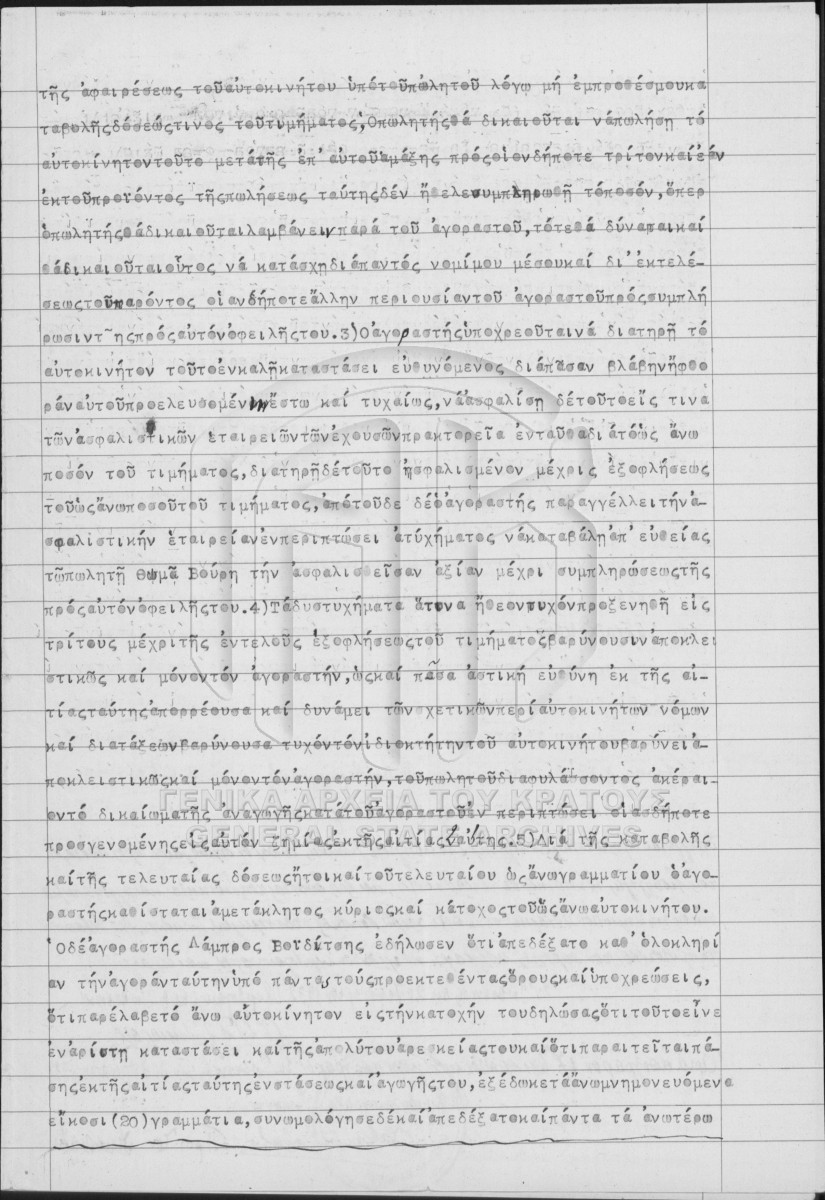 τῆς ἀφαιρέσεως τοῦ αὐτοκινήτου ὑπό τοῦ πωλητοῦ λόγῳ μή ἐμπροθέσμου κα
ταβολῆς δόσεώς τινος τοῦ τιμήματος, Ὁ πωλητής θά δικαιοῦται νά πωλήσῃ τό
αὐτοκίνητον τοῦτο μετά τῆς ἐπ' αὐτοῦ ἁμάξης πρός οἱονδήποτε τρίτον καί ἐάν
ἐκ τοῦ προϊόντος τῆς πωλήσεως ταύτης δέν ἤθελε συμπληρωθῇ τό ποσόν, ὅπερ
ὁ πωλητής θά δικαιοῦται λαμβάνειν παρά τοῦ ἀγοραστοῦ, τότε θά δύναται καί
θά δικαιοῦται οὗτος νά κατάσχῃ διά παντός νομίμου μέσου καί δι' ἐκτελέ-
σεως τοῦ παρόντος οἱανδήποτε ἄλλην περιουσίαν τοῦ ἀγοραστοῦ πρός συμπλή
ρωσιν τῆς πρός αὐτόν ὀφειλῆς του. 3) Ὁ ἀγοραστής ὑποχρεοῦται νά διατηρῇ τό
αὐτοκίνητον τοῦτο ἐν καλῇ καταστάσει εὐθυνόμενος διά πᾶσαν βλάβην ἤ φθο
ράν αὐτοῦ προελευσομένην ἔστω καί τυχαίως, νά ἀσφαλίσῃ δέ τοῦτο εἴς τινα
τῶν ἀσφαλιστικῶν ἑταιρειῶν τῶν ἐχουσῶν πρακτορεῖα ἐνταῦθα διά τό ὡς ἄνω
ποσόν τοῦ τιμήματος, διατηρῇ δέ τοῦτο ἠσφαλισμένον μέχρις ἐξοφλήσεως
τοῦ ὡς ἄνω ποσοῦ τοῦ τιμήματος, ἀπό τοῦδε δέ ὁ ἀγοραστής παραγγέλλει τήν ἀ-
σφαλιστικήν ἑταιρείαν ἐν περιπτώσει ἀτυχήματος νά καταβάλῃ ἀπ' εὐθείας
τῷ πωλητῇ Θωμᾷ Βούρη τήν ἀσφαλισθεῖσαν ἀξίαν μέχρι συμπληρώσεως τῆς
πρός αὐτόν ὀφειλῆς του. 4) Τά δυστυχήματα ἅτινα ἤθεον τυχόν προξενηθῆ εἰς
τρίτους μέχρι τῆς ἐντελοῦς ἐξοφλήσεως τοῦ τιμήματος βαρύνουσιν ἀποκλει
στικῶς καί μόνον τόν ἀγοραστήν, ὡς καί πᾶσα ἀστική εὐθύνη ἐκ τῆς αἰ-
τίας ταύτης ἀπορρέουσα καί δυνάμει τῶν σχετικῶν περί αὐτοκινήτων νόμων
καί διατάξεων βαρύνουσα τυχόν τόν ἰδιοκτήτην τοῦ αὐτοκινήτου βαρύνει ἀ-
ποκλειστικῶς καί μόνον τόν ἀγοραστήν, τοῦ πωλητοῦ διαφυλάσσοντος ἀκέραι-
ον τό δικαίωμα τῆς ἀναγωγῆς κατά τοῦ ἀγοραστοῦ ἐν περιπτώσει οἱασδήποτε
προσγενομένης εἰς αὐτόν ζημίας ἐκ τῆς αἰτίας ταύτης. 5) Διά τῆς καταβολῆς
καί τῆς τελευταίας δόσεως ἤτοι καί τοῦ τελευταίου ὡς ἄνω γραμματίου ὁ ἀγο-
ραστής καθίσταται ἀμετάκλητος κύριος καί κάτοχος τοῦ ὡς ἄνω αὐτοκινήτου.
Ὁ δέ ἀγοραστής Λάμπρος Βουδίτσης ἐδήλωσεν ὅτι ἀπεδέξατο καθ' ὁλοκληρί
αν τήν ἀγοράν ταύτην ὑπό πάντας τούς προεκτεθέντας ὅρους καί ὑποχρεώσεις,
ὅτι παρέλαβε τό ἄνω αὐτοκίνητον εἰς τήν κατοχήν του δηλώσας ὅτι τοῦτο εἶνε
ἐν ἀρίστῃ καταστάσει καί τῆς ἀπολύτου ἀρεσκείας του καί ὅτι παραιτεῖται πά-
σης ἐκ τῆς αἰτίας ταύτης ἐνστάσεως καί ἀγωγῆς του, ἐξέδωκε τά ἄνω μνημονευόμενα
εἴκοσι (20) γραμμάτια, συνωμολόγησε δέ καί ἀπεδέξατο καί πάντα τά ἀνωτέρω
ΓΕΝΙΚΑ ΑΡΧΕΙΑ ΤΟΥ ΚΡΑΤΟΥΣ
GENERAL STATE ARCHIVES